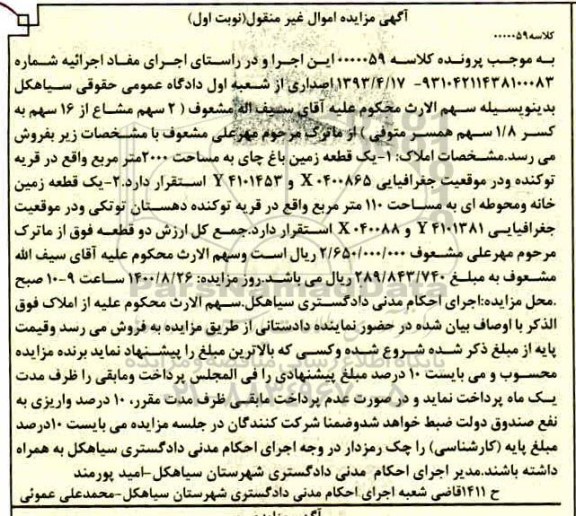 آگهی مزایده اموال غیر منقول(نوبت اول)
کلاسه۰۰۰۰۰۵۹
به موجب پرونده کلاسه ۰۰۰۰۰۵۹ این اجرا و در راستای اجرای مفاد اجرائیه شماره
۹۳۱۰۴۲۱۱۴۳۸۱۰۰۰۸۳- ۱۳۹۳/۴/۱۷ اصداری از شعبه اول دادگاه عمومی حقوقی سیاهکل
بدینوسیله سهم الارث محکوم علیه آقای سیف اله مشعوف ( ۲ سهم مشاع از ۱۶ سهم به
کسر ۱/۸ سهم همسر متوفی ) از ماترک مرحوم مهرعلی مشعوف با مشخصات زیر بفروش
می رسد.مشخصات املاک: ۱-یک قطعه زمین باغ چای به مساحت ۲۰۰۰متر مربع واقع در قریه
توکنده ودر موقعیت جغرافیایی X ۰۴۰۰۸۶۵ و Y ۴۱۰۱۴۵۳ استقرار دارد.۲-یک قطعه زمین
خانه ومحوطه ای به مساحت ۱۱۰ متر مربع واقع در قریه توکنده دهستان توتکی ودر موقعیت
جغرافیایی Y ۴۱۰۱۳۸۱ و X ۰۴۰۰۸۸ استقرار دارد.جمع کل ارزش دو قطعه فوق از ماترک
مرحوم مهرعلی مشعوف ۲/۶۵۰/۰۰۰/۰۰۰ ریال است وسهم الارث محکوم علیه آقای سیف الله
مشعوف به مبلغ ۲۸۹/۸۴۳/۷۴۰ ریال می باشد.روز مزایده: ۱۴۰۰/۸/۲۶ ساعت ۹-۱۰ صبح
.محل مزایده:اجرای احکام مدنی دادگستری سیاهکل.سهم الارث محکوم علیه از املاک فوق
الذکر با اوصاف بیان شده در حضور نماینده دادستانی از طریق مزایده به فروش می رسد وقیمت
پایه از مبلغ ذکر شده شروع شده وکسی که بالاترین مبلغ را پیشنهاد نماید برنده مزایده
محسوب و می بایست ۱۰ درصد مبلغ پیشنهادی را فی المجلس پرداخت ومابقی را ظرف مدت
یک ماه پرداخت نماید و در صورت عدم پرداخت مابقی ظرف مدت مقرر، ۱۰ درصد واریزی به
نفع صندوق دولت ضبط خواهد شدوضمنا شرکت کنندگان در جلسه مزایده می بایست ۱۰درصد
مبلغ پایه (کارشناسی) را چک رمزدار در وجه اجرای احکام مدنی دادگستری سیاهکل به همراه
داشته باشند.مدیر اجرای احکام مدنی دادگستری شهرستان سیاهکل-امید پورمند
ح ۱۴۱۱قاضی شعبه اجرای احکام مدنی دادگستری شهرستان سیاهکل-محمدعلی عموئی